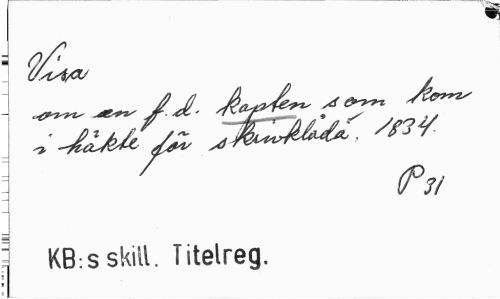 Visa
om en f.d. kapten som kom
i häkte för skrivklådå, 1834.
P 31
KB:s skill. Titelreg.